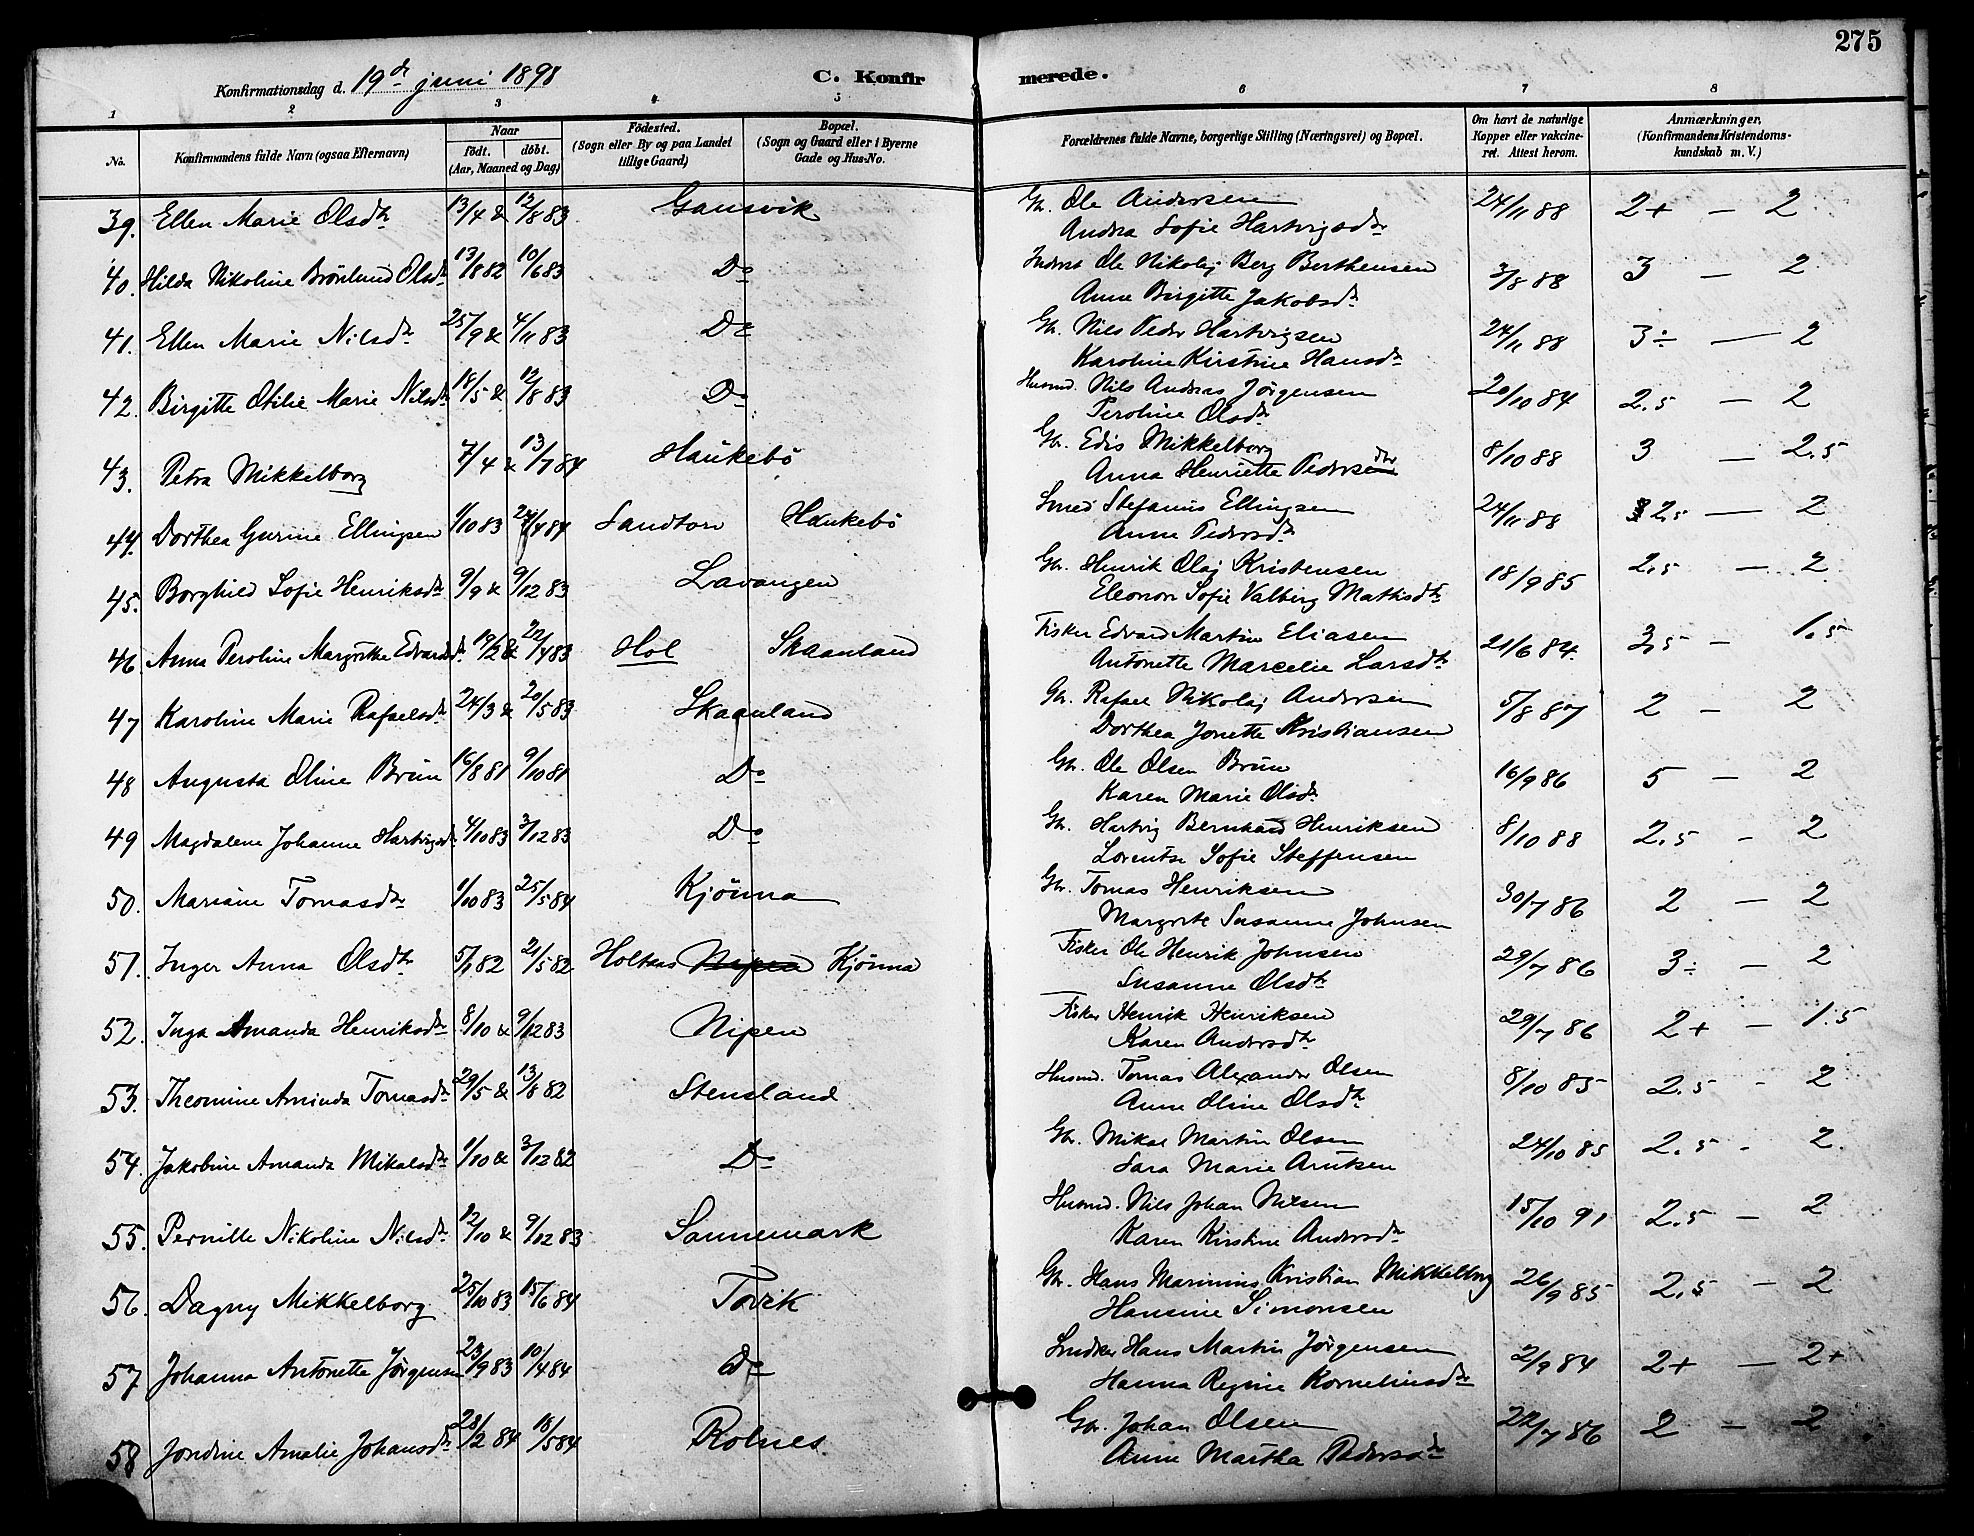 275
Konfirmationsdag d. 19de juni 1898
C. Konfirmerede.
1 2 3 4 5 6 7 8
No. Konfirmandens fulde Navn (ogsaa Efternavn) Naar født. døbt. (Aar, Maaned og Dag) Fødested. (Sogn eller By og paa Landet tillige Gaard) Bopæl. (Sogn og Gaard eller i Byerne Gade og Hus-No. Forældrenes fulde Navne, borgerlige Stilling (Næringsvei) og Bopæl. Om havt de naturlige Kopper eller vakcineret. Attest herom. Anmærkninger, (Konfirmandens Kristendomskundskab m. V.)
39. Ellen Marie Olsdtr 13/4 & 12/8 83 Gausvik Gbr. Ole Andersen 24/11 88 2+ — 2
Andrea Sofie Hartvigsdtr
40. Hilda Nikoline Brönlund Olsdtr 13/8 82 10/6 83 Do Inderst Ole Nikolaj Berg Berthensen 3/8 88 3 — 2
Anne Birgitte Jakobsdtr
41. Ellen Marie Nilsdtr 25/9 & 4/11 83 Do Gbr. Nils Peder Hartvigsen 24/11 88 3÷ — 2
Karoline Kirstine Hansdtr
42. Birgitte Otilie Marie Nilsdtr 18/5 & 12/8 83 Do Husmd. Nils Andreas Jörgensen 20/10 84 2.5 — 2
Peroline Olsdtr
43. Petra Mikkelborg 7/4 & 13/7 84 Haukebö Gbr. Edis Mikkelborg 8/10 88 3 — 2.5
Anna Henriette Pedersdtr
44. Dorthea Gurine Ellingsen 1/10 83 24/4 84 Sandtorv Haukebö Smed Stefanus Ellingsen 24/11 88 2,5 — 2
Anne Pedersdtr
45. Borghild Sofie Henriksdtr 9/9 & 9/12 83 Lavangen Gbr. Henrik Olaj Kristensen 18/9 85 2,5 — 2
Eleonore Sofie Valberg Mathisdtr
46. Anna Peroline Margrethe Edvardsd. 19/2 & 22/4 83 Hol Skaanland Fisker Edvard Martin Eliasen 21/6 84. 3,5 — 1.5
Antonette Marcelie Larsdtr
47 Karoline Marie Rafaelsdtr 24/3 & 20/5 83 Skaanland Gbr. Rafael Nikolaj Andersen 5/8 87 2 — 2
Dorthea Jonette Kristiansen
48 Augusta Oline Brun 16/8 81 9/10 81 Do Gbr. Ole Olsen Brun 16/9 86 5 — 2
Karen Marie Olsdtr
49 Magdalene Johanne Hartvigsdtr 4/10 83 3/12 83 Do Gbr. Hartvig Bernhard Henriksen 8/10 88 2.5 — 2
Lorentse Sofie Steffensen
50. Mariane Tomasdtr 1/10 83 25/5 84 Kjönna Gbr. Tomas Henriksen 30/7 86 2 — 2
Margrete Susanne Johnsen
51. Inger Anna Olsdtr 5/1 82 21/5 82 Holtaas Nipen Kjönna Fisker Ole Henrik Johnsen 29/7 86 3÷ — 2
Susanne Olsdtr
52. Inga Amanda Henriksdtr 8/10 & 9/12 83 Nipen Fisker Henrik Henriksen 29/7 86 2+ — 1.5
Karen Andersdtr
53. Theomine Aminda Tomasdtr 29/5 & 13/8 82 Stensland Husmd. Tomas Alexander Olsen 8/10 85 2.5 — 2
Anne Oline Olsdtr
54. Jakobine Amanda Mikalsdtr 1/10 & 3/12 82 Do Gbr. Mikal Martin Olsen 24/10 85 2.5 - 2
Sara Marie Arntsen
55. Pernille Nikoline Nilsdtr 12/10 & 9/12 83 Sannemark Husmd. Nils Johan Nilsen 15/10 91 2.5 — 2
Karen Kirstine Andersdtr
56. Dagny Mikkelborg 25/10 83 15/6 84 Tovik Gbr. Hans Marinius Kristian Mikkelborg 26/9 85 2.5 — 2
Hansine Simonsen
57 Johanna Antonette Jörgensen 23/9 83 10/4 84 Do Snedker Hans Martin Jörgensen 2/9 84 2+ — 2+
Hanna Regine Korneliusdtr
58 Jondine Amalie Johansdtr 28/2 84 18/5 84 Rolnes Gbr. Johan Olsen 22/7 86 2 — 2
Anne Martha Pedersdtr